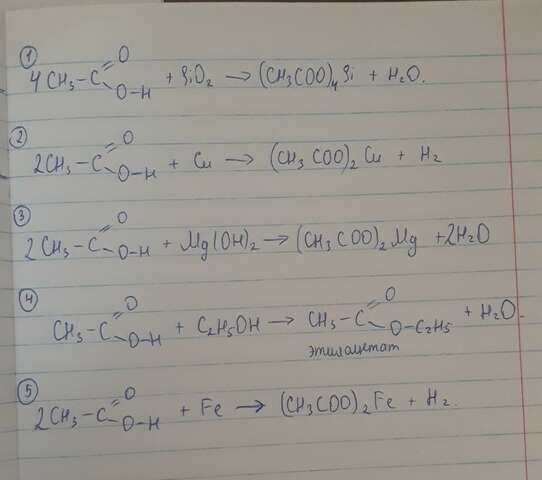 ① 4CH₃-C=O O-H + SiO₂ → (CH₃COO)₄Si + H₂O.
② 2CH₃-C=O O-H + Cu → (CH₃COO)₂Cu + H₂
③ 2CH₃-C=O O-H + Mg(OH)₂ → (CH₃COO)₂Mg + 2H₂O
④ CH₃-C=O O-H + C₂H₅OH → CH₃-C=O O-C₂H₅ + H₂O.
этилацетат
⑤ 2CH₃-C=O O-H + Fe → (CH₃COO)₂Fe + H₂.